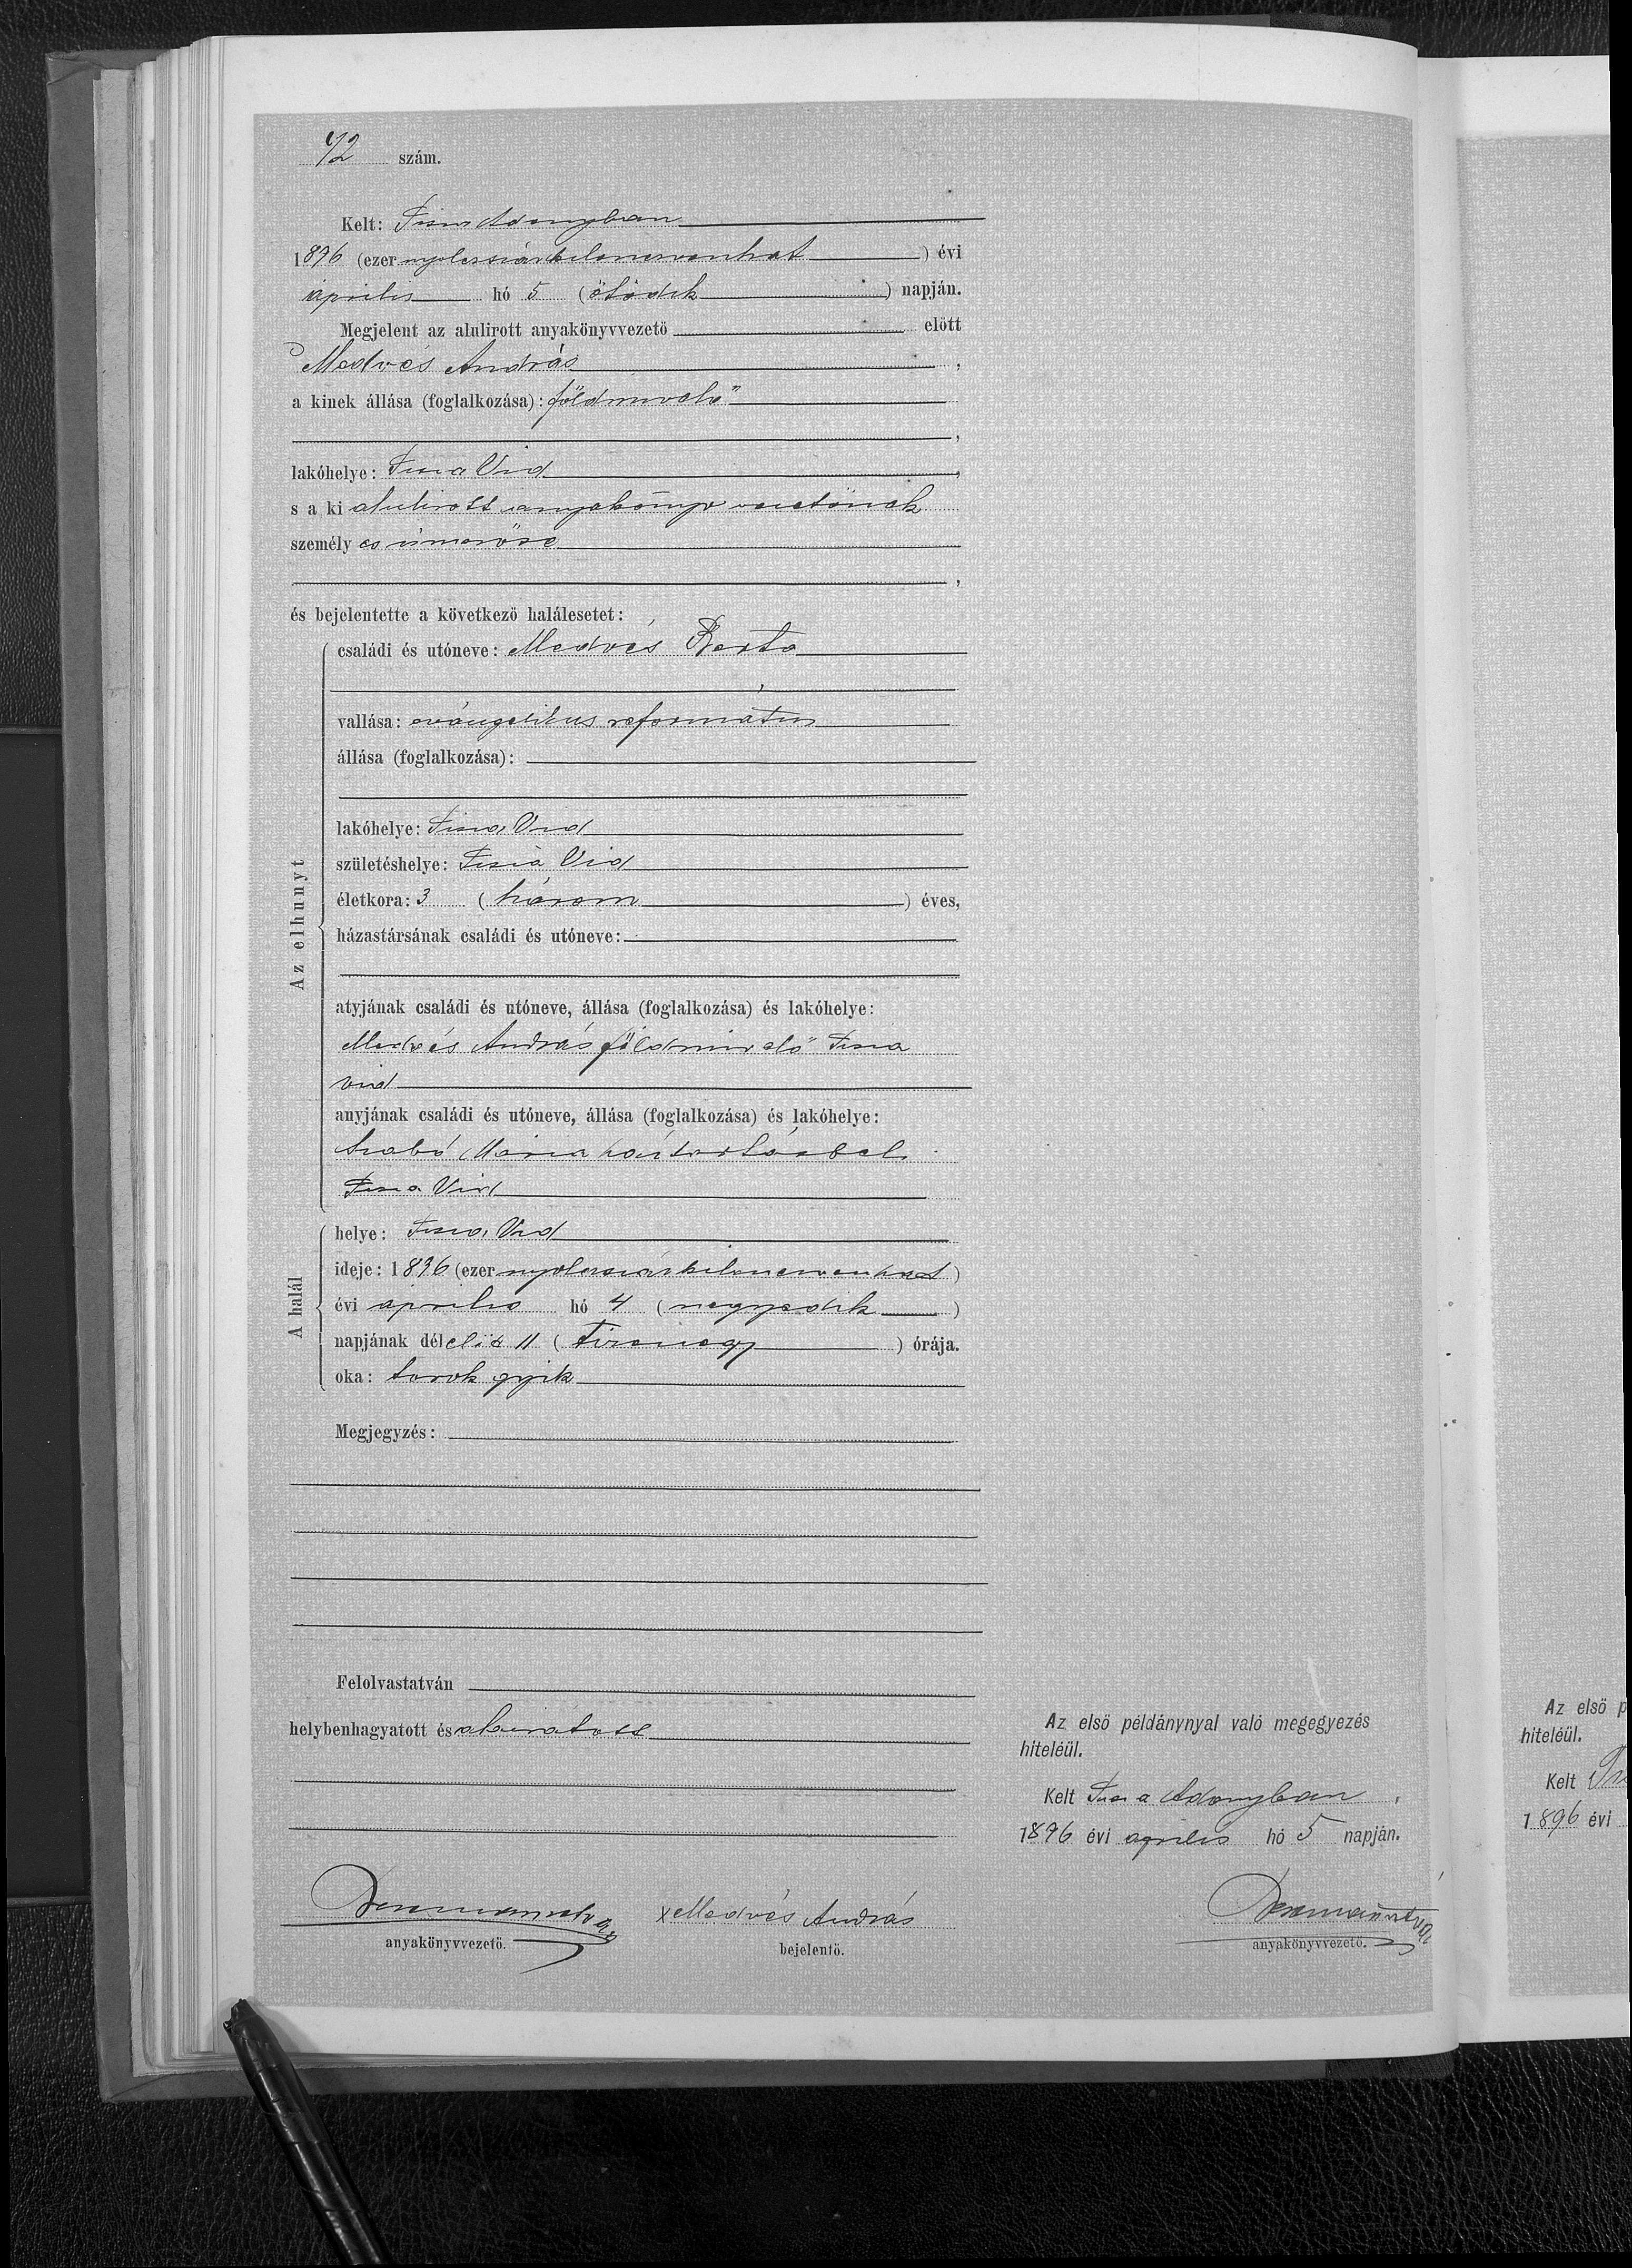 42 szám.
Kelt: Tisza Adonyban
1896 (ezer nyolcszázkilencvenhat) évi
április hó 5 (ötödik) napján.
Megjelent az alulirott anyakönyvvezető előtt
Medvés András,
a kinek állása (foglalkozása): földmivelő
lakóhelye: Tisza Vid,
s a ki alulirott anyakönyv vezetőnek
személyes ismerőse,
és bejelentette a következő halálesetet:
Az elhunyt
családi és utóneve: Medvés Berta
vallása: evángelikus református
állása (foglalkozása):
lakóhelye: Tisza Vid
születéshelye: Tisza Vid
életkora: 3 (három) éves,
házastársának családi és utóneve:
atyjának családi és utóneve, állása (foglalkozása) és lakóhelye:
Medvés András földmivelő Tisza
vid
anyjának családi és utóneve, állása (foglalkozása) és lakóhelye:
Szabó Mária háztartásbeli
Tisza Vid
A halál
helye: Tisza Vid
ideje: 1896 (ezer nyolcszázkilencvenhat)
évi április hó 4 (negyedik)
napjának délelőtt 11 (Tizenegy) órája.
oka: torok gyik
Megjegyzés:
Felolvastatván
helybenhagyatott és aláiratott
Az első példánynyal való megegyezés
hiteléül.
Kelt Tisza Adonyban,
1896 évi április hó 5 napján.
anyakönyvvezető.
x Medvés András
bejelentő.
anyakönyvvezető.
Az első p
hiteléül.
Kelt
1896 évi